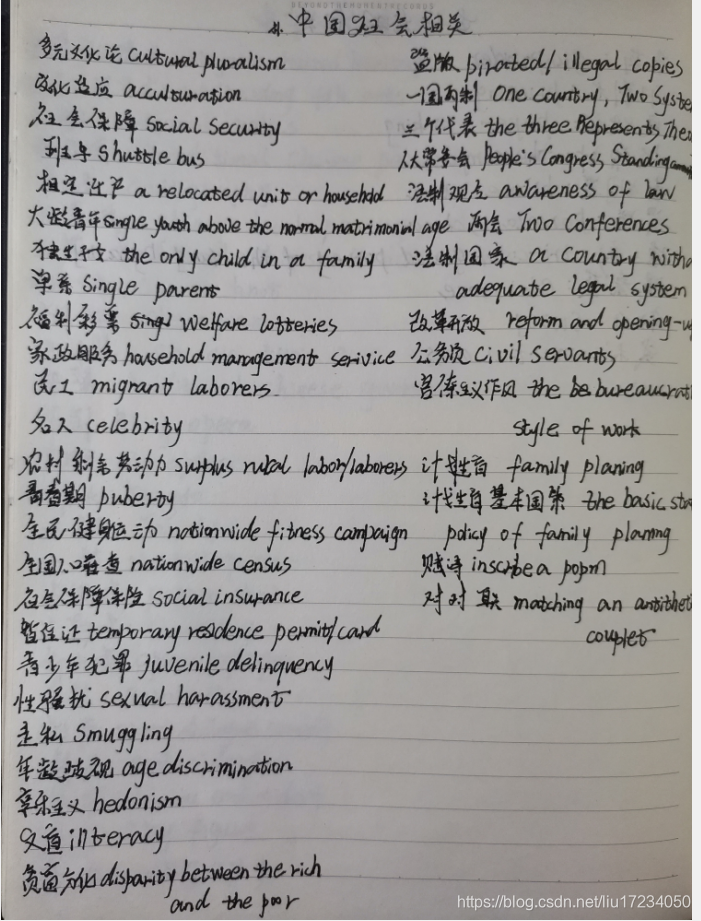 BEYONDTHEMOREATHERECORDS
4. 中国社会相关
多元文化论 cultural pluralism
文化适应 acculturation
社会保障 social security
班车 shuttle bus
拆迁户 a relocated unit or household
大龄青年 single youth above the normal matrimonial age
独生子女 the only child in a family
单亲 single parent
福利彩票 singl welfare lotteries
家政服务 household management serivice
民工 migrant laborers
名人 celebrity
农村剩余劳动力 surplus rural labor/laborers
青春期 puberty
全民健身运动 nationwide fitness campaign
全国人口普查 nationwide census
社会保障保险 social insurance
暂住证 temporary residence permit/card
青少年犯罪 juvenile delinquency
性骚扰 sexual harassment
走私 smuggling
年龄歧视 age discrimination
享乐主义 hedonism
文盲 illiteracy
贫富分化 disparity between the rich
and the poor
盗版 pirated/ illegal copies
一国两制 One country, Two Syste
三个代表 the three Represents The
人大常委会 People's Congress Standing
法制观念 awareness of law
两会 Two Conferences
法制国家 a country with a
adequate legal system
改革开放 reform and opening-u
公务员 civil servants
官僚主义作风 the be bureaucrati
style of work
计划生育 family planing
计划生育基本国策 the basic sta
policy of family planing
赋诗 inscribe a popm
对对联 matching an antithet
couplet
https://blog.csdn.net/liu17234050